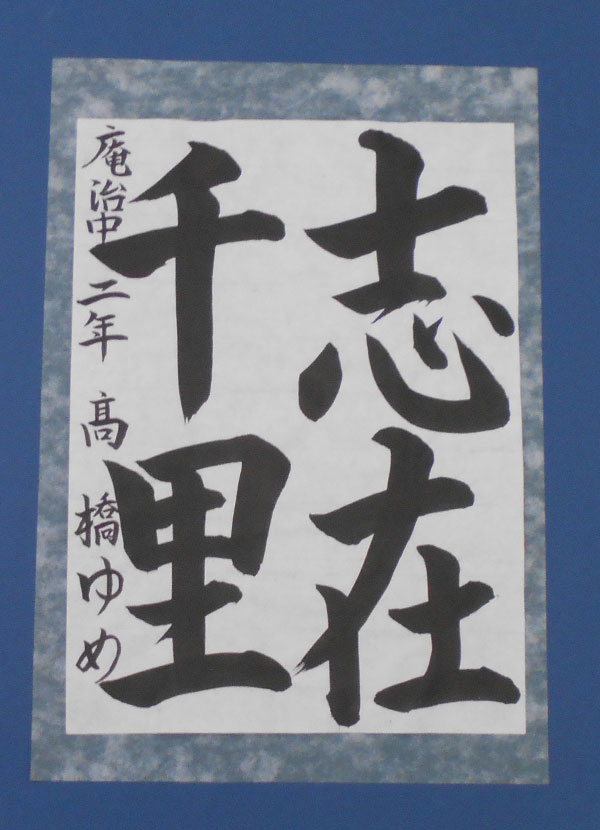 志在
千里
庵治中 二年 髙橋ゆめ